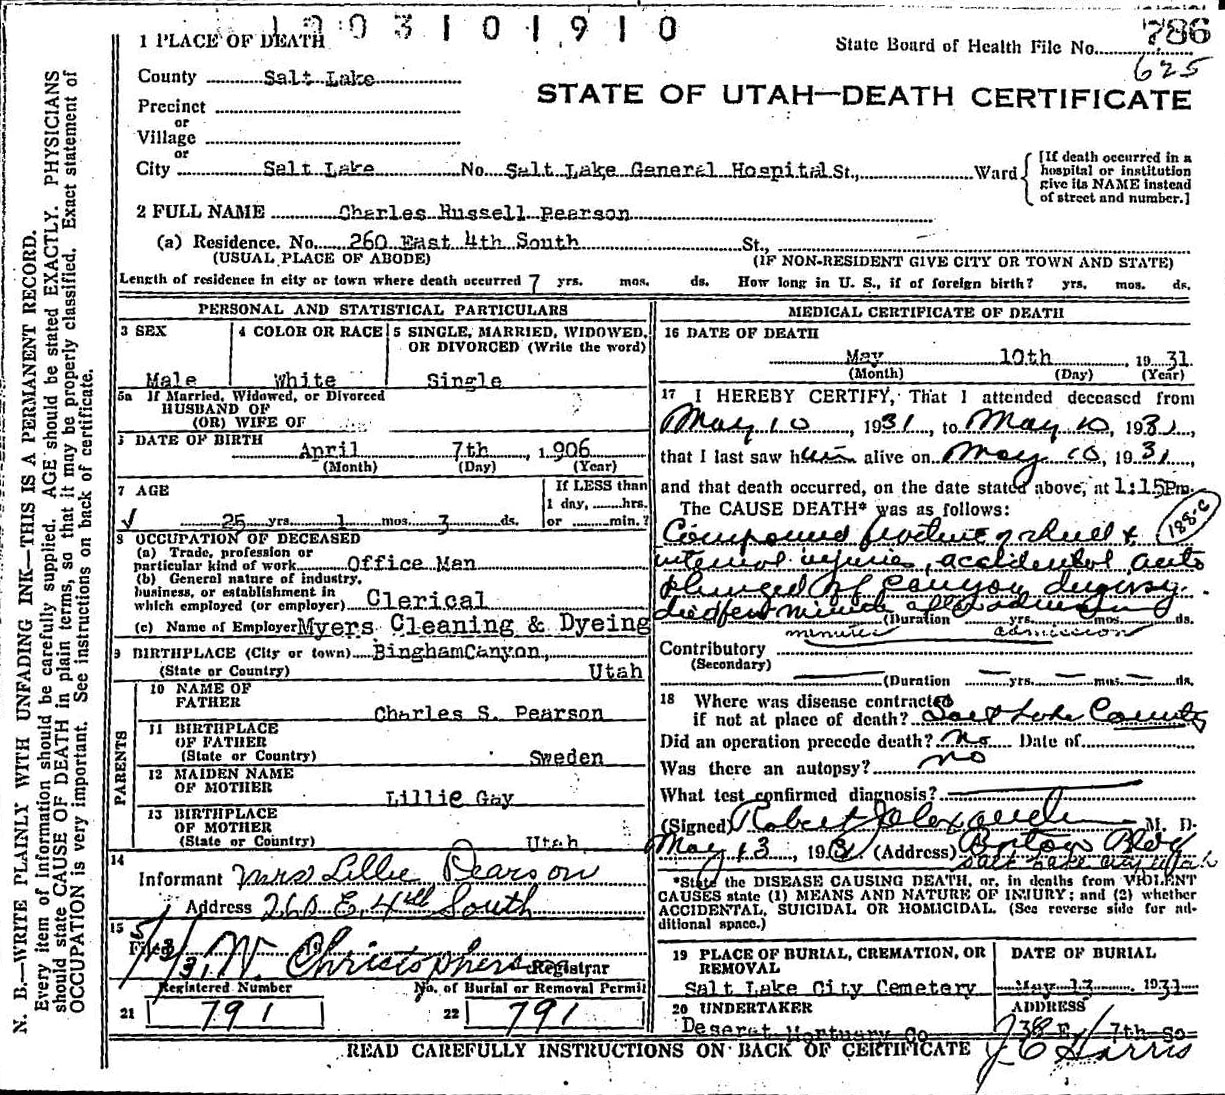 1203101910
786
1 PLACE OF DEATH
State Board of Health File No.
625
County Salt Lake
STATE OF UTAH—DEATH CERTIFICATE
Precinct
or
Village
or
City Salt Lake No. Salt Lake General Hospital St., Ward
[If death occurred in a hospital or institution give its NAME instead of street and number.]
2 FULL NAME Charles Russell Pearson
(a) Residence. No. 260 East 4th South St.,
(USUAL PLACE OF ABODE) (IF NON-RESIDENT GIVE CITY OR TOWN AND STATE)
Length of residence in city or town where death occurred 7 yrs. mos. ds. How long in U. S., if of foreign birth? yrs. mos. ds.
PERSONAL AND STATISTICAL PARTICULARS
3 SEX
Male
4 COLOR OR RACE
White
5 SINGLE, MARRIED, WIDOWED,
OR DIVORCED (Write the word)
Single
5a If Married, Widowed, or Divorced
HUSBAND OF
(OR) WIFE OF
DATE OF BIRTH
April 7th, 1906
(Month) (Day) (Year)
7 AGE
25 yrs. 1 mos. 3 ds.
If LESS than
1 day, hrs.
or min.?
8 OCCUPATION OF DECEASED
(a) Trade, profession or
particular kind of work Office Man
(b) General nature of industry,
business, or establishment in
which employed (or employer) Clerical
(c) Name of Employer Myers Cleaning & Dyeing
9 BIRTHPLACE (City or town) BinghamCanyon,
(State or Country) Utah
PARENTS
10 NAME OF
FATHER
Charles S. Pearson
11 BIRTHPLACE
OF FATHER
(State or Country) Sweden
12 MAIDEN NAME
OF MOTHER
Lillie Gay
13 BIRTHPLACE
OF MOTHER
(State or Country) Utah
14
Informant Mrs Lillie Pearson
Address 260 E. 4th South
15
Filed 5/13/31 W. Christopherson Registrar
Registered Number No. of Burial or Removal Permit
21 791 22 791
MEDICAL CERTIFICATE OF DEATH
16 DATE OF DEATH
May 10th, 1931
(Month) (Day) (Year)
17 I HEREBY CERTIFY, That I attended deceased from
May 10, 1931, to May 10, 1931,
that I last saw him alive on May 10, 1931,
and that death occurred, on the date stated above, at 1:15Pm.
The CAUSE DEATH* was as follows:
188-c
Compound fracture of skull &
internal injuries, accidental, auto
plunged off canyon dugway.
died few minutes after admission
(Duration yrs. mos. ds.
minutes admission
Contributory
(Secondary)
(Duration yrs. mos. ds.
18 Where was disease contracted
if not at place of death? Salt Lake County
Did an operation precede death? No Date of
Was there an autopsy? no
What test confirmed diagnosis?
(Signed) Robert Alexander M. D.
May 13, 1931 (Address) Boston Bldg
Salt Lake City Utah
*State the DISEASE CAUSING DEATH, or, in deaths from VIOLENT
CAUSES state (1) MEANS AND NATURE OF INJURY; and (2) whether
ACCIDENTAL, SUICIDAL OR HOMICIDAL. (See reverse side for additional space.)
19 PLACE OF BURIAL, CREMATION, OR
REMOVAL
Salt Lake City Cemetery
DATE OF BURIAL
May 13 1931
20 UNDERTAKER
Deseret Mortuary Co
ADDRESS
738 E 7th So
J C Harris
READ CAREFULLY INSTRUCTIONS ON BACK OF CERTIFICATE
N. B.—WRITE PLAINLY WITH UNFADING INK—THIS IS A PERMANENT RECORD.
Every item of information should be carefully supplied. AGE should be stated EXACTLY. PHYSICIANS
should state CAUSE OF DEATH in plain terms, so that it may be properly classified. Exact statement of
OCCUPATION is very important. See instructions on back of certificate.